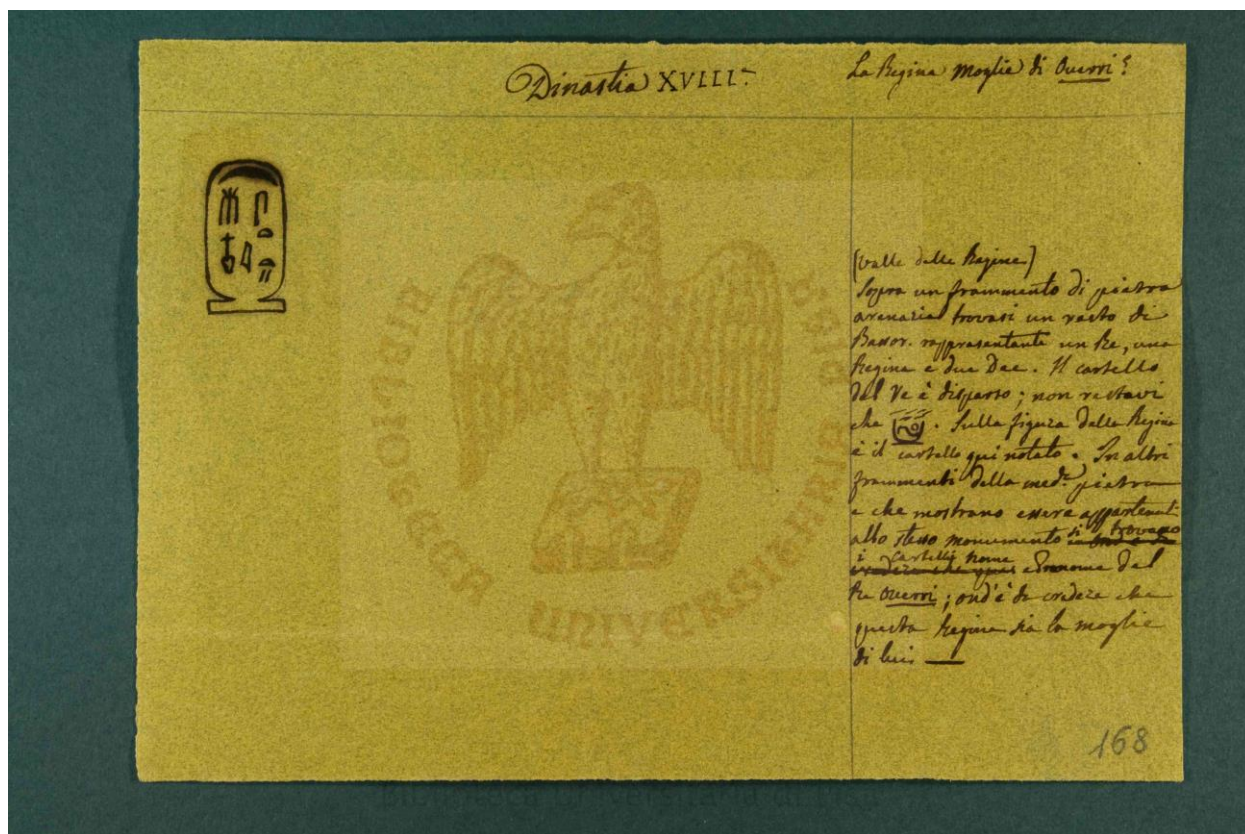 Dinastia XVIII.ª
La Regina moglie di Ouerri?
(valle delle Regine)
Sopra un frammento di pietra
arenaria trovasi un resto di
Bassor. rappresentante un Re, una
Regina e due Dee. Il cartello
del Re è disparso; non restavi
che . Sulla figura della Regina
è il cartello qui notato. In altri
frammenti della med.ª pietra
e che mostrano essere appartenut
allo stesso monumento si trovano
i cartelli nome e prenome del
Re Ouerri; ond'è da credere che
questa Regina sia la moglie
di lui —
168
UNIVERSITARIA
Biblioteca Universitaria di Pisa